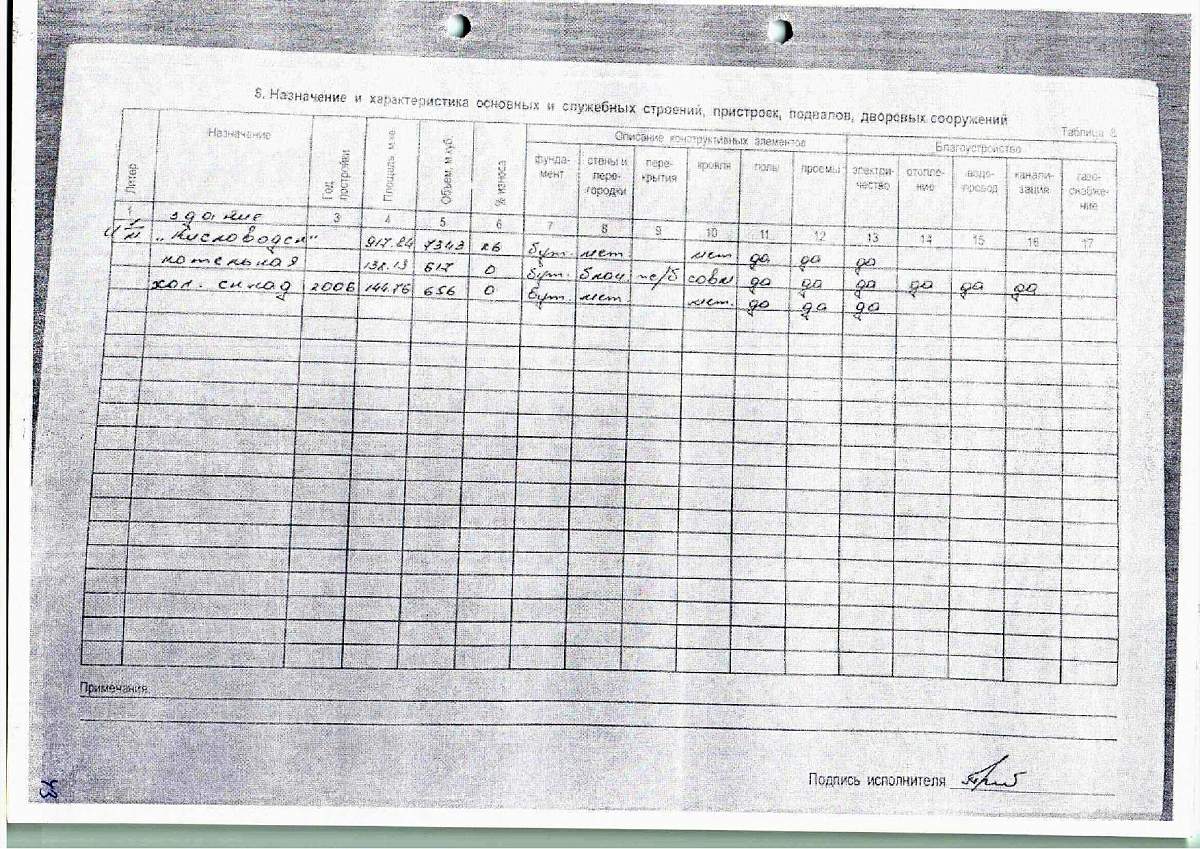 8. Назначение и характеристика основных и служебных строений, пристроек, подвалов, дворовых сооружений
Таблица 8
Литер Назначение Год постройки Площадь м.кв. Объем м.куб. % износа Описание конструктивных элементов Благоустройство
фунда-мент стены и пере-городки пере-крытия кровля полы проемы электри-чество отопле-ние водо-провод канали-зация газо-снабже-ние
1 3 4 5 6 7 8 9 10 11 12 13 14 15 16 17
здание
"Кисловодск" 917.24 7343 26 бут. мет. мет да да да
котельная 138.13 617 0 бут. блоч. ж/б совм да да да да да да
хол. склад 2006 144.76 656 0 бут. мет. мет. да да да
Примечания
Подпись исполнителя